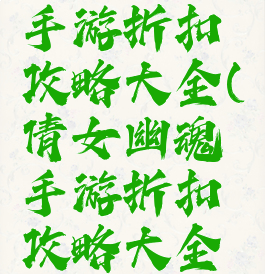 手游折扣
攻略大全(
倩女幽魂
手游折扣
攻略大全